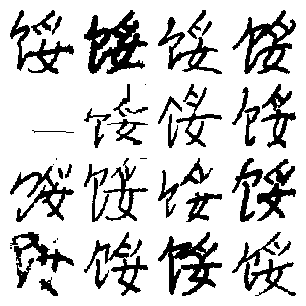 馁馁馁馁
馁馁馁
馁馁馁馁
馁馁馁馁